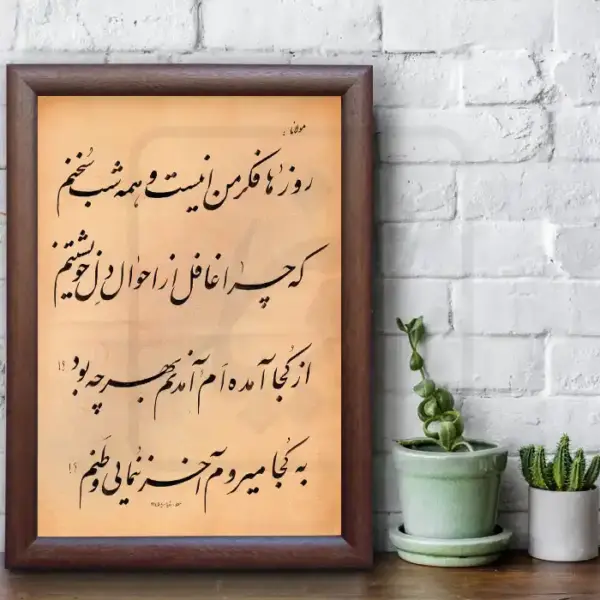 مولانا
روزها فکر من اینست و همه شب سخنم
که چرا غافل از احوال دل خویشتنم
از کجا آمده‌ام آمدنم بهر چه بود !!
به کجا میروم آخر ننمایی وطنم !؟